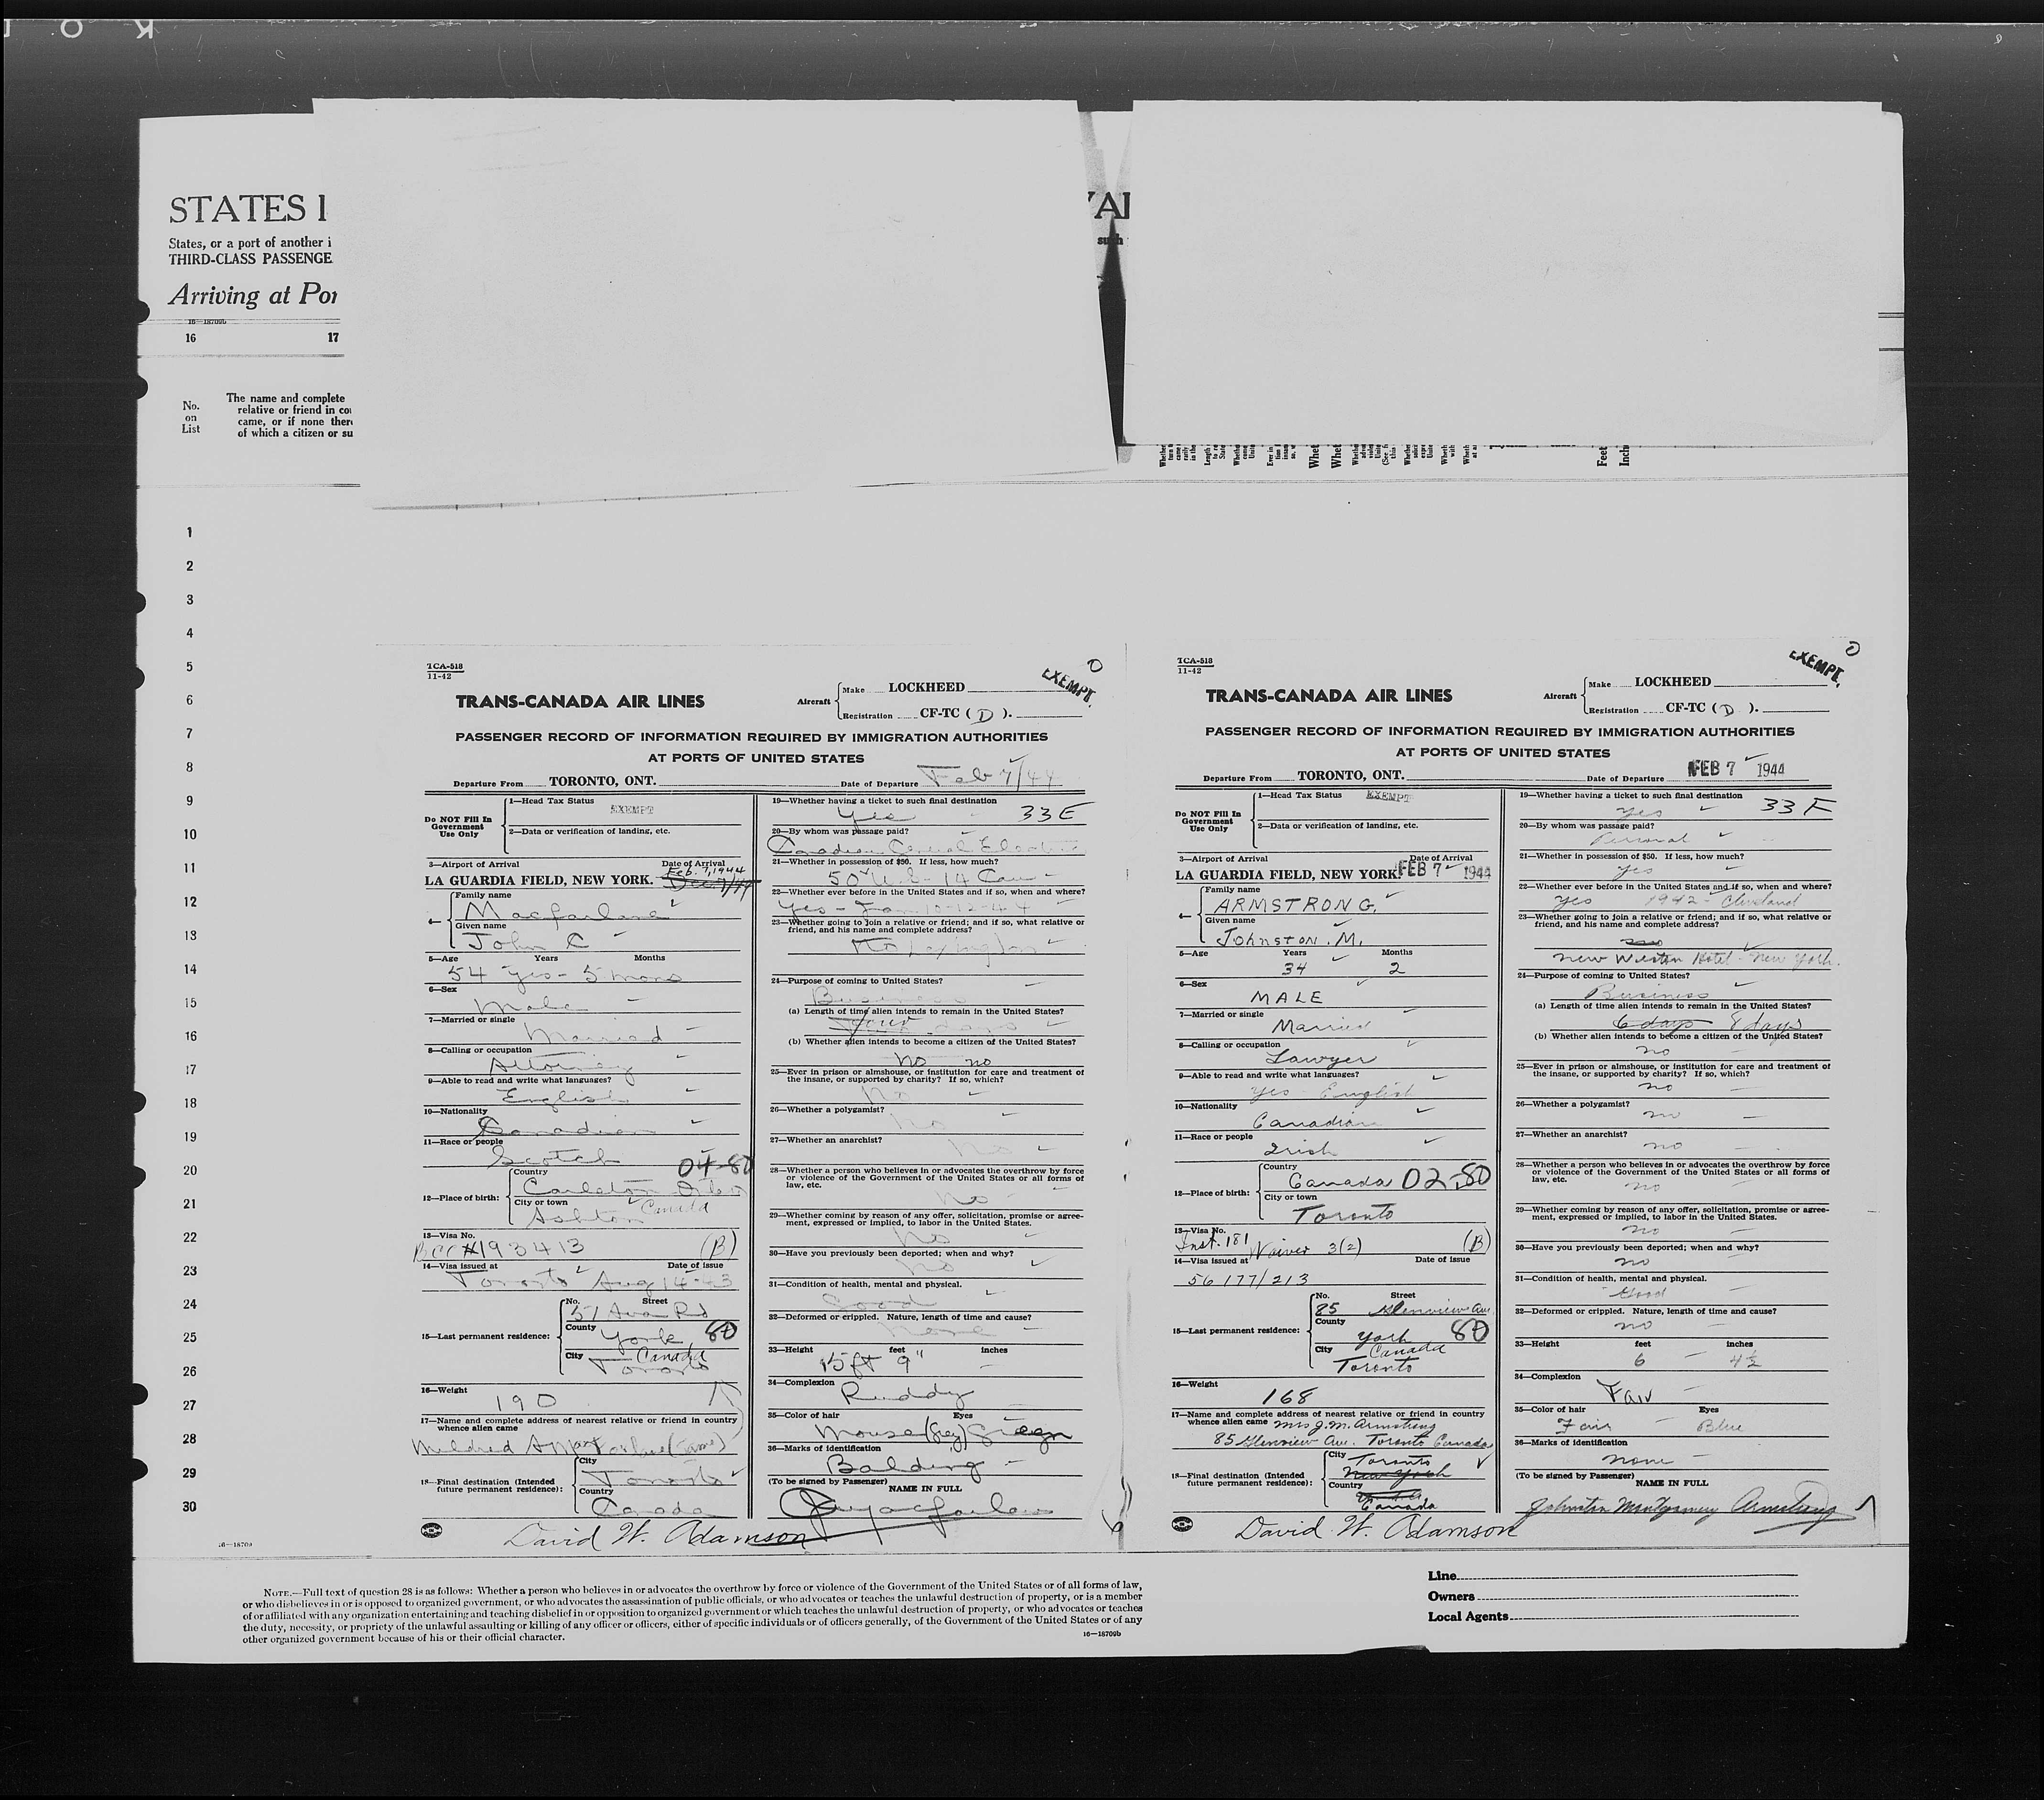 STATES I
States, or a port of another i
THIRD-CLASS PASSENGE
Arriving at Por
16—18709b
16 17
No.
on
List
The name and complete
relative or friend in cou
came, or if none there
of which a citizen or su
Feet
Inch
1
2
3
4
5
6
7
8
9
10
11
12
13
14
15
16
17
18
19
20
21
22
23
24
25
26
27
28
29
30
TCA-518
11-42
EXEMPT.
TRANS-CANADA AIR LINES
Aircraft
Make LOCKHEED
Registration CF-TC ( D ).
PASSENGER RECORD OF INFORMATION REQUIRED BY IMMIGRATION AUTHORITIES
AT PORTS OF UNITED STATES
Departure From TORONTO, ONT. Date of Departure Feb 7/44
Do NOT Fill In
Government
Use Only
1—Head Tax Status EXEMPT
2—Data or verification of landing, etc.
3—Airport of Arrival Date of Arrival
LA GUARDIA FIELD, NEW YORK. Feb. 7, 1944
4— Family name
Macfarlane
Given name
John C
5—Age Years Months
54 yrs - 5 mons
6—Sex
Male
7—Married or single
Married
8—Calling or occupation
Attorney
9—Able to read and write what languages?
English
10—Nationality
Canadian
11—Race or people
Scotch 04-80
12—Place of birth:
Country
Carleton
City or town Canada
Ashton
13—Visa No.
BCC #193413 (B)
14—Visa issued at Date of issue
Toronto Aug 14-43
15—Last permanent residence:
No. Street
51 Ava Rd
County
York 80
City Canada
Toronto
16—Weight
190
17—Name and complete address of nearest relative or friend in country
whence alien came
Mildred (same)
18—Final destination (Intended
future permanent residence):
City
Toronto
Country
Canada
19—Whether having a ticket to such final destination
Yes 33E
20—By whom was passage paid?
Canadian General Electric
21—Whether in possession of $50. If less, how much?
50 U.S - 14 Can
22—Whether ever before in the United States and if so, when and where?
Yes - Jan 10-12-44
23—Whether going to join a relative or friend; and if so, what relative or
friend, and his name and complete address?
Lexington
24—Purpose of coming to United States?
Business
(a) Length of time alien intends to remain in the United States?
four days
(b) Whether alien intends to become a citizen of the United States?
No no
25—Ever in prison or almshouse, or institution for care and treatment of
the insane, or supported by charity? If so, which?
No
26—Whether a polygamist?
No
27—Whether an anarchist?
No
28—Whether a person who believes in or advocates the overthrow by force
or violence of the Government of the United States or all forms of
law, etc.
No
29—Whether coming by reason of any offer, solicitation, promise or agree-
ment, expressed or implied, to labor in the United States.
No
30—Have you previously been deported; when and why?
No
31—Condition of health, mental and physical.
Good
32—Deformed or crippled. Nature, length of time and cause?
None
33—Height feet inches
5 ft 9"
34—Complexion
Ruddy
35—Color of hair Eyes
Mouse (Grey) Green
36—Marks of identification
Balding
(To be signed by Passenger) NAME IN FULL
David W. Adamson
TCA-518
11-42
EXEMPT.
TRANS-CANADA AIR LINES
Aircraft
Make LOCKHEED
Registration CF-TC ( D ).
PASSENGER RECORD OF INFORMATION REQUIRED BY IMMIGRATION AUTHORITIES
AT PORTS OF UNITED STATES
Departure From TORONTO, ONT. Date of Departure FEB 7 1944
Do NOT Fill In
Government
Use Only
1—Head Tax Status EXEMPT
2—Data or verification of landing, etc.
3—Airport of Arrival Date of Arrival
LA GUARDIA FIELD, NEW YORK. FEB 7 1944
4— Family name
ARMSTRONG.
Given name
Johnston. M.
5—Age Years Months
34 2
6—Sex
MALE
7—Married or single
Married
8—Calling or occupation
Lawyer
9—Able to read and write what languages?
Yes English
10—Nationality
Canadian
11—Race or people
Irish
12—Place of birth:
Country
Canada 02-80
City or town
Toronto
13—Visa No.
Inst. 181 Waiver 3(2) (B)
14—Visa issued at Date of issue
56177/213
15—Last permanent residence:
No. Street
85 Glenview Ave
County
York 80
City Canada
Toronto
16—Weight
168
17—Name and complete address of nearest relative or friend in country
whence alien came Mrs J.M. Armstrong
85 Glenview Ave. Toronto Canada
18—Final destination (Intended
future permanent residence):
City Toronto
New York
Country
Canada
19—Whether having a ticket to such final destination
Yes 33F
20—By whom was passage paid?
Personal
21—Whether in possession of $50. If less, how much?
Yes
22—Whether ever before in the United States and if so, when and where?
Yes 1942 - Cleveland
23—Whether going to join a relative or friend; and if so, what relative or
friend, and his name and complete address?
no
New Weston Hotel - New York.
24—Purpose of coming to United States?
Business
(a) Length of time alien intends to remain in the United States?
6 days 8 days
(b) Whether alien intends to become a citizen of the United States?
no
25—Ever in prison or almshouse, or institution for care and treatment of
the insane, or supported by charity? If so, which?
no
26—Whether a polygamist?
no
27—Whether an anarchist?
no
28—Whether a person who believes in or advocates the overthrow by force
or violence of the Government of the United States or all forms of
law, etc.
no
29—Whether coming by reason of any offer, solicitation, promise or agree-
ment, expressed or implied, to labor in the United States.
no
30—Have you previously been deported; when and why?
no
31—Condition of health, mental and physical.
Good
32—Deformed or crippled. Nature, length of time and cause?
no
33—Height feet inches
6 4½
34—Complexion
Fair
35—Color of hair Eyes
Fair Blue
36—Marks of identification
none
(To be signed by Passenger) NAME IN FULL
Johnston Montgomery Armstrong
David W. Adamson
16—18709
NOTE.—Full text of question 28 is as follows: Whether a person who believes in or advocates the overthrow by force or violence of the Government of the United States or of all forms of law,
or who disbelieves in or is opposed to organized government, or who advocates the assassination of public officials, or who advocates or teaches the unlawful destruction of property, or is a member
of or affiliated with any organization entertaining and teaching disbelief in or opposition to organized government or which teaches the unlawful destruction of property, or who advocates or teaches
the duty, necessity, or propriety of the unlawful assaulting or killing of any officer or officers, either of specific individuals or of officers generally, of the Government of the United States or of any
other organized government because of his or their official character.
16—18709b
Line
Owners
Local Agents